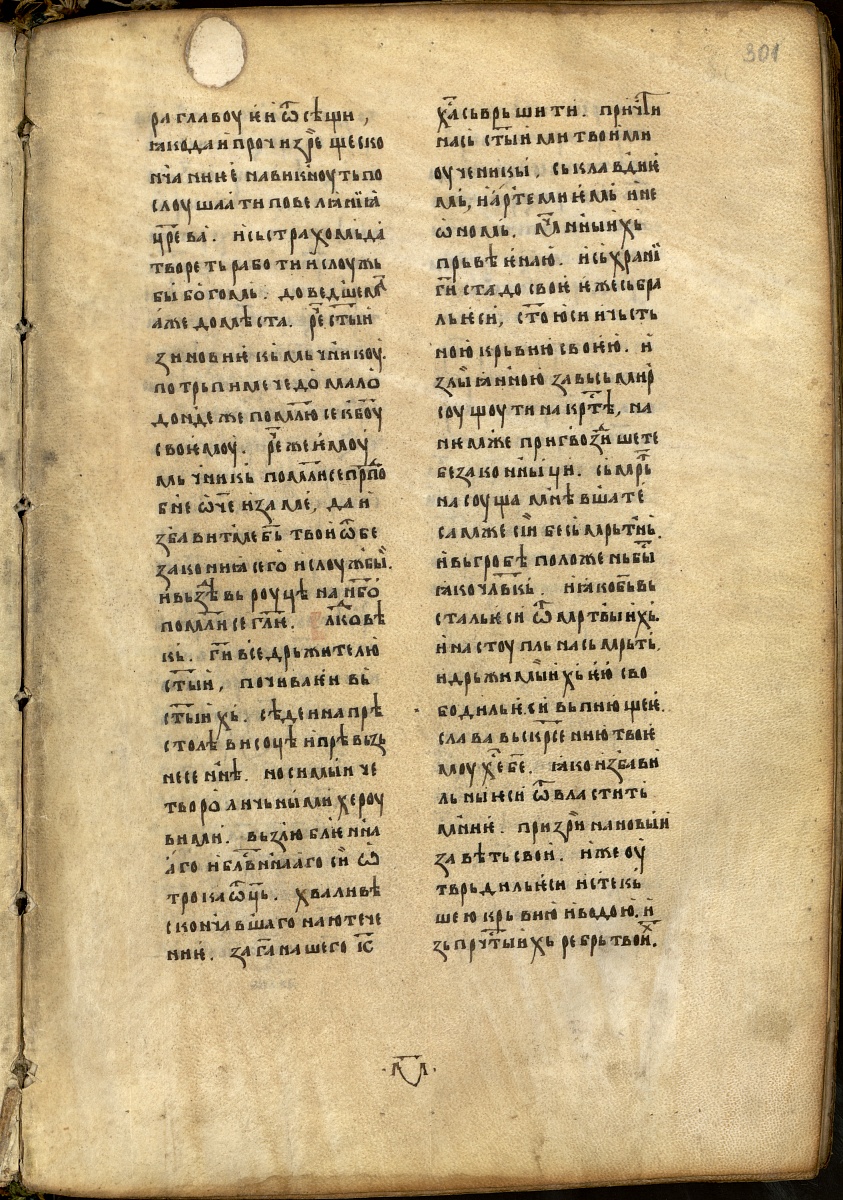 301
ра главоу ѥи ѿсѣщи ,
ꙗко да и прочи зре ще ско
нчаниѥ навикноуть по
слоушати повелѣниꙗ
црева . и сь страхомь да
твореть работи и слоужь
бы богомь . доведшем
же до мѣста . рече стыи
зиновиѥ кь мчникоу .
потрьпи ме чедо мало
доньдеже помлю се кь боу
своѥмоу . рече же ѥмоу
мьчникь помли се прпо
бне ѡче и за ме , да и
збавит ме бь твои ѿ бе
закониꙗ сего и слоужбы .
и вьздѣ вь роуцѣ на нбо
помли се глѥ . лковѣ
кь . ги вседрьжителю
стыи , почиваѥи вь
стыихь . сѣдеи на прѣ
столѣ висоцѣ и прѣвьзь
несенѣ . носимыи че
творѡличьными хероу
вими . вьзлюблѥнна
аго и блвеннааго си ѡ
трока ѿць . хвали вѣ
скончавшаго наю тече
ниѥ . за га нашего іс
ха сьврьшити . причти
нась стыими твоими
оученикы , сь клавдиѥ
мь, и артемиѥмь и не
ѡномь . мчнныихь
прьвѣѥ наю . и сьхрани
ги стадо своѥ ѥже сьбра
ль ѥси , стою си и чьсть
ною крьвию своѥю . и
злиꙗнною за вьсь мирь
соущоу ти на крте , на
нѥмже пригвоздише те
безаконныци . сьмрть
на соуща мнѣвша те
самже си бесьмрьтнь .
и вь гробѣ положень бы
ꙗко члвкь . и ꙗко бь вь
сталь ѥси ѿ мртвыихь .
и настоупль на сьмрьть .
и дрьжимыихь ѥю сво
бодиль ѥси вьпиющеѥ .
слава вьскрсению твоѥ
моу хе бе . ꙗко избави
ль ны ѥси ѿ власти ть
мниѥ . призри на новыи
завѣть свои . иже оу
тврьдиль ѥси истекь
шею крьвию и водою . и
зь прчтыихь ребрь твоих .
л